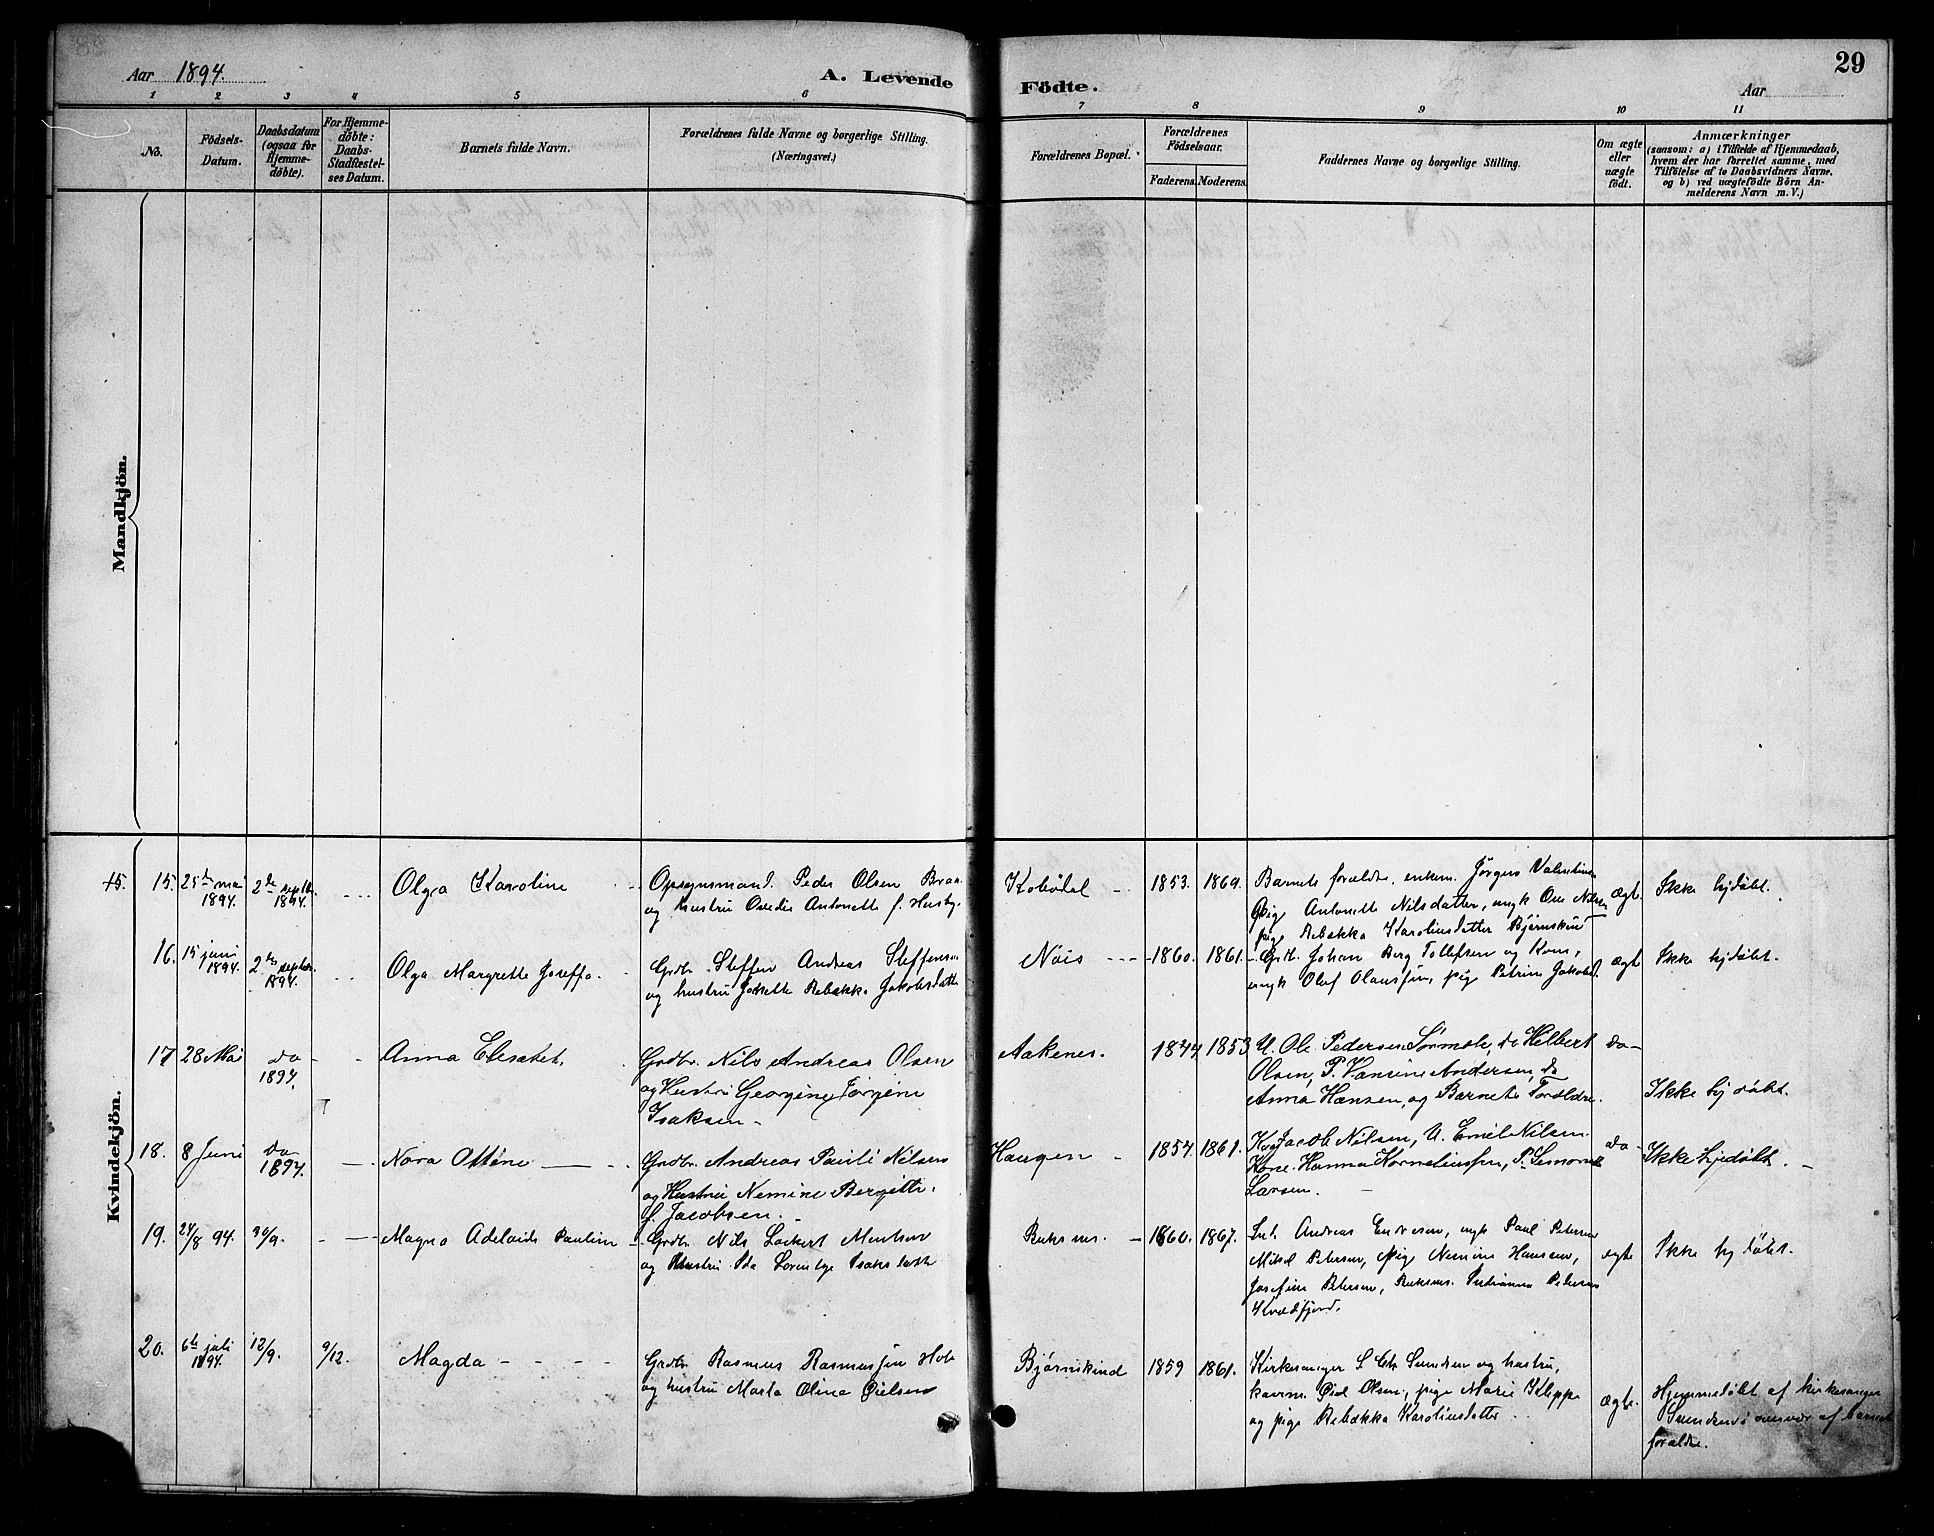 Aar 1894.
A. Levende
Födte.
Aar
29
1 2 3 4 5 6 7 8 9 10 11
No.
Födsels-
Datum.
Daabsdatum
(ogsaa for
Hjemme-
døbte).
For Hjemme-
døbte:
Daabs-
Stadfæstel-
ses Datum.
Barnets fulde Navn.
Forældrenes fulde Navne og borgerlige Stilling.
(Næringsvei.)
Forældrenes Bopæl.
Forældrenes
Födselsaar.
Faderens.
Moderens.
Faddernes Navne og borgerlige Stilling.
Om ægte
eller
uægte
födt.
Anmærkninger
(saasom: a) i Tilfælde af Hjemmedaab,
hvem der har forrettet samme, med
Tilföielse af to Daabsvidners Navne,
og b) ved uægtefödte Börn An-
melderens Navn m.V.)
Mandkjön.
Kvindekjön.
15. 15. 25de mai
1894.
2de septbr.
1894.
Olga Karoline
Opsynsmand. Peder Olsen
og hustru Antonette f. Husby.
1853. 1869.
Barnets forældre, enkem. Jørgen
pige Antonette Nilsdatter, ungk Ole Nilsen
pige Rebakka Karolinsdatter Bjørnskin
ægte.
Ikke hjdøbt.
16. 15 juni
1894.
2de septbr.
1894.
Olga Margrette Joseffa.
Grdbr. Steffen Andreas Steffensen
og hustru Rebakka Jakobsdatter
Nøis
1860. 1861.
Grdb. Johan Berg Tollefsen og Kone,
ungk Olaf Olaussen, pige Petrine
ægte
Ikke hjdøbt.
17 28 Mai
do
1894.
Anna Elesabet.
Grdbr. Nils Andreas Olsen
og Hustru Georgine Jørgine
Isaksen
Aakenes.
1853
U. Ole Pedersen, do Hilbert
Olsen, P. Vansine Andersen, do
Anna Hansen, og Barnets Forældre.
do
Ikke hjdøbt.
18. 8 Juni
do
1894.
Nora Ottine
Grdbr. Andreas Pauli Nilsen
og Hustru Nemine Bergitte
f. Jacobsen.
Haugen
1857. 1861.
Jacob Nilsen, U. Emil Nilsen
Kone Hanna Korneliussen, P.
Larsen.
do
Ikke hjedøbt.
19. 24/8 94 30/9.
Magna Adelaide Pauline
Grdbr. Nils Lockert
og Hustru Ida
1860. 1867.
Andreas, ungk Paul Petersen
Mikal Petersen, pige Nemine Hansen,
Josefine Petersen,
Kvædfjord.
ægte
Ikke hjdøbt.
20. 6te juli
1894.
12/9. 9/12.
Magda
Grdbr Rasmus Rasmussen
og hustru Marta Olina
Bjørnskind
1859 1861.
Kirkesanger S. Chr. Sundsen og hustru,
Olsen, pige Marie Klippe
og pige Rebakka Karolinsdatter
ægte.
Hjemmedøbt af kirkesanger
Sundsen i nærvær af barnets
forældre.